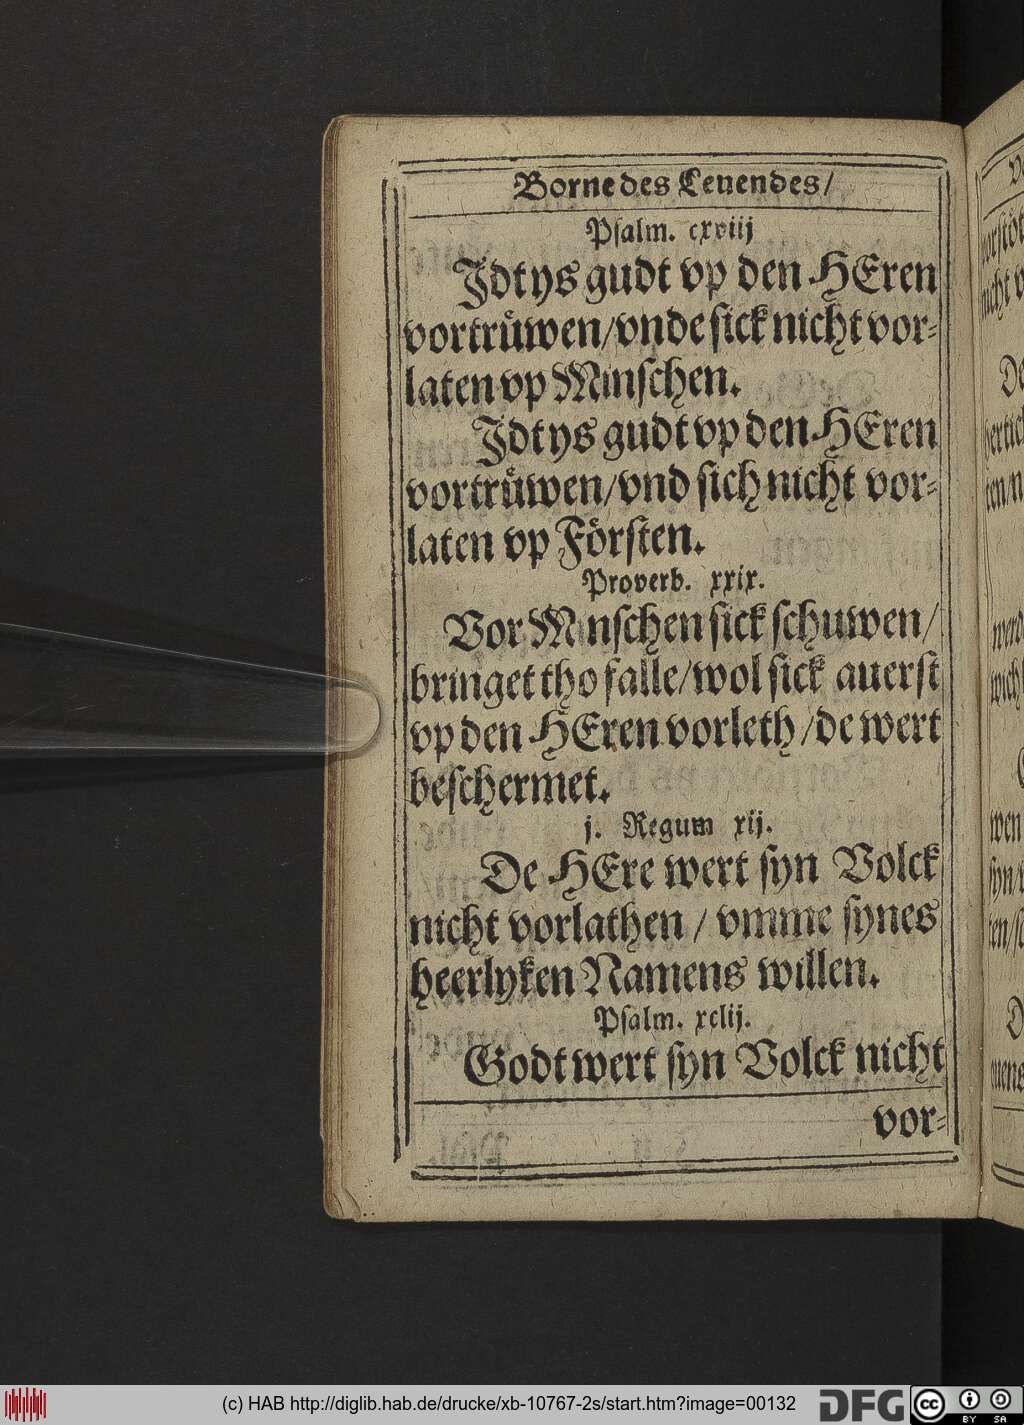 Borne des Leuendes/
Psalm. cxviij
Jdt ys gudt vp den HEren
vortruͤwen/vnde sick nicht vor-
laten vp Minschen.
Jdt ys gudt vp den HEren
vortruͤwen/vnd sich nicht vor-
laten vp Foͤrsten.
Proverb. xxix.
Vor Minschen sick schuwen/
bringet tho falle/wol sick auerst
vp den HEren vorleth/de wert
beschermet.
j. Regum xij.
De HEre wert syn Volck
nicht vorlathen / vmme synes
heerlyken Namens willen.
Psalm. xclij.
Godt wert syn Volck nicht
vor-
(c) HAB http://diglib.hab.de/drucke/xb-10767-2s/start.htm?image=00132
DFG
cc
BY SA